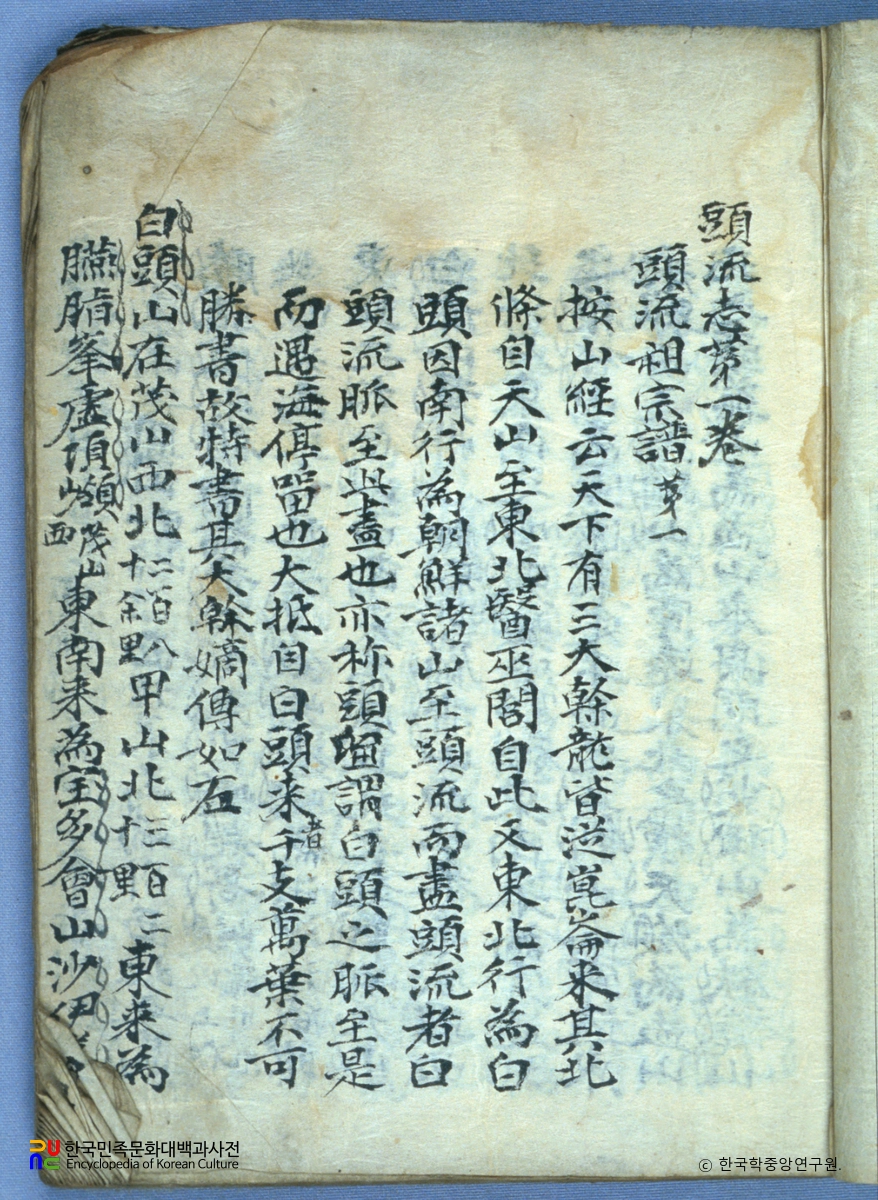 頭流志第一卷
頭流祖宗譜 第一
按山經云天下有三大幹龍皆從崑崙来其北
條自天山至東北醫巫閭自此又東北行為白
頭因南行為朝鮮諸山至頭流而盡頭流者白
頭流脈至此盡也亦称頭留謂白頭之脈至是
而遇海停留也大抵自白頭来者千支萬葉不可
勝書故特書其大幹嫡傳如右
白頭山在茂山西北二百八十余里甲山北三百二十里東来為
臙脂峯虛項嶺茂山西東南来為宝多會山沙伊
한국민족문화대백과사전
Encyclopedia of Korean Culture
ⓒ 한국학중앙연구원.